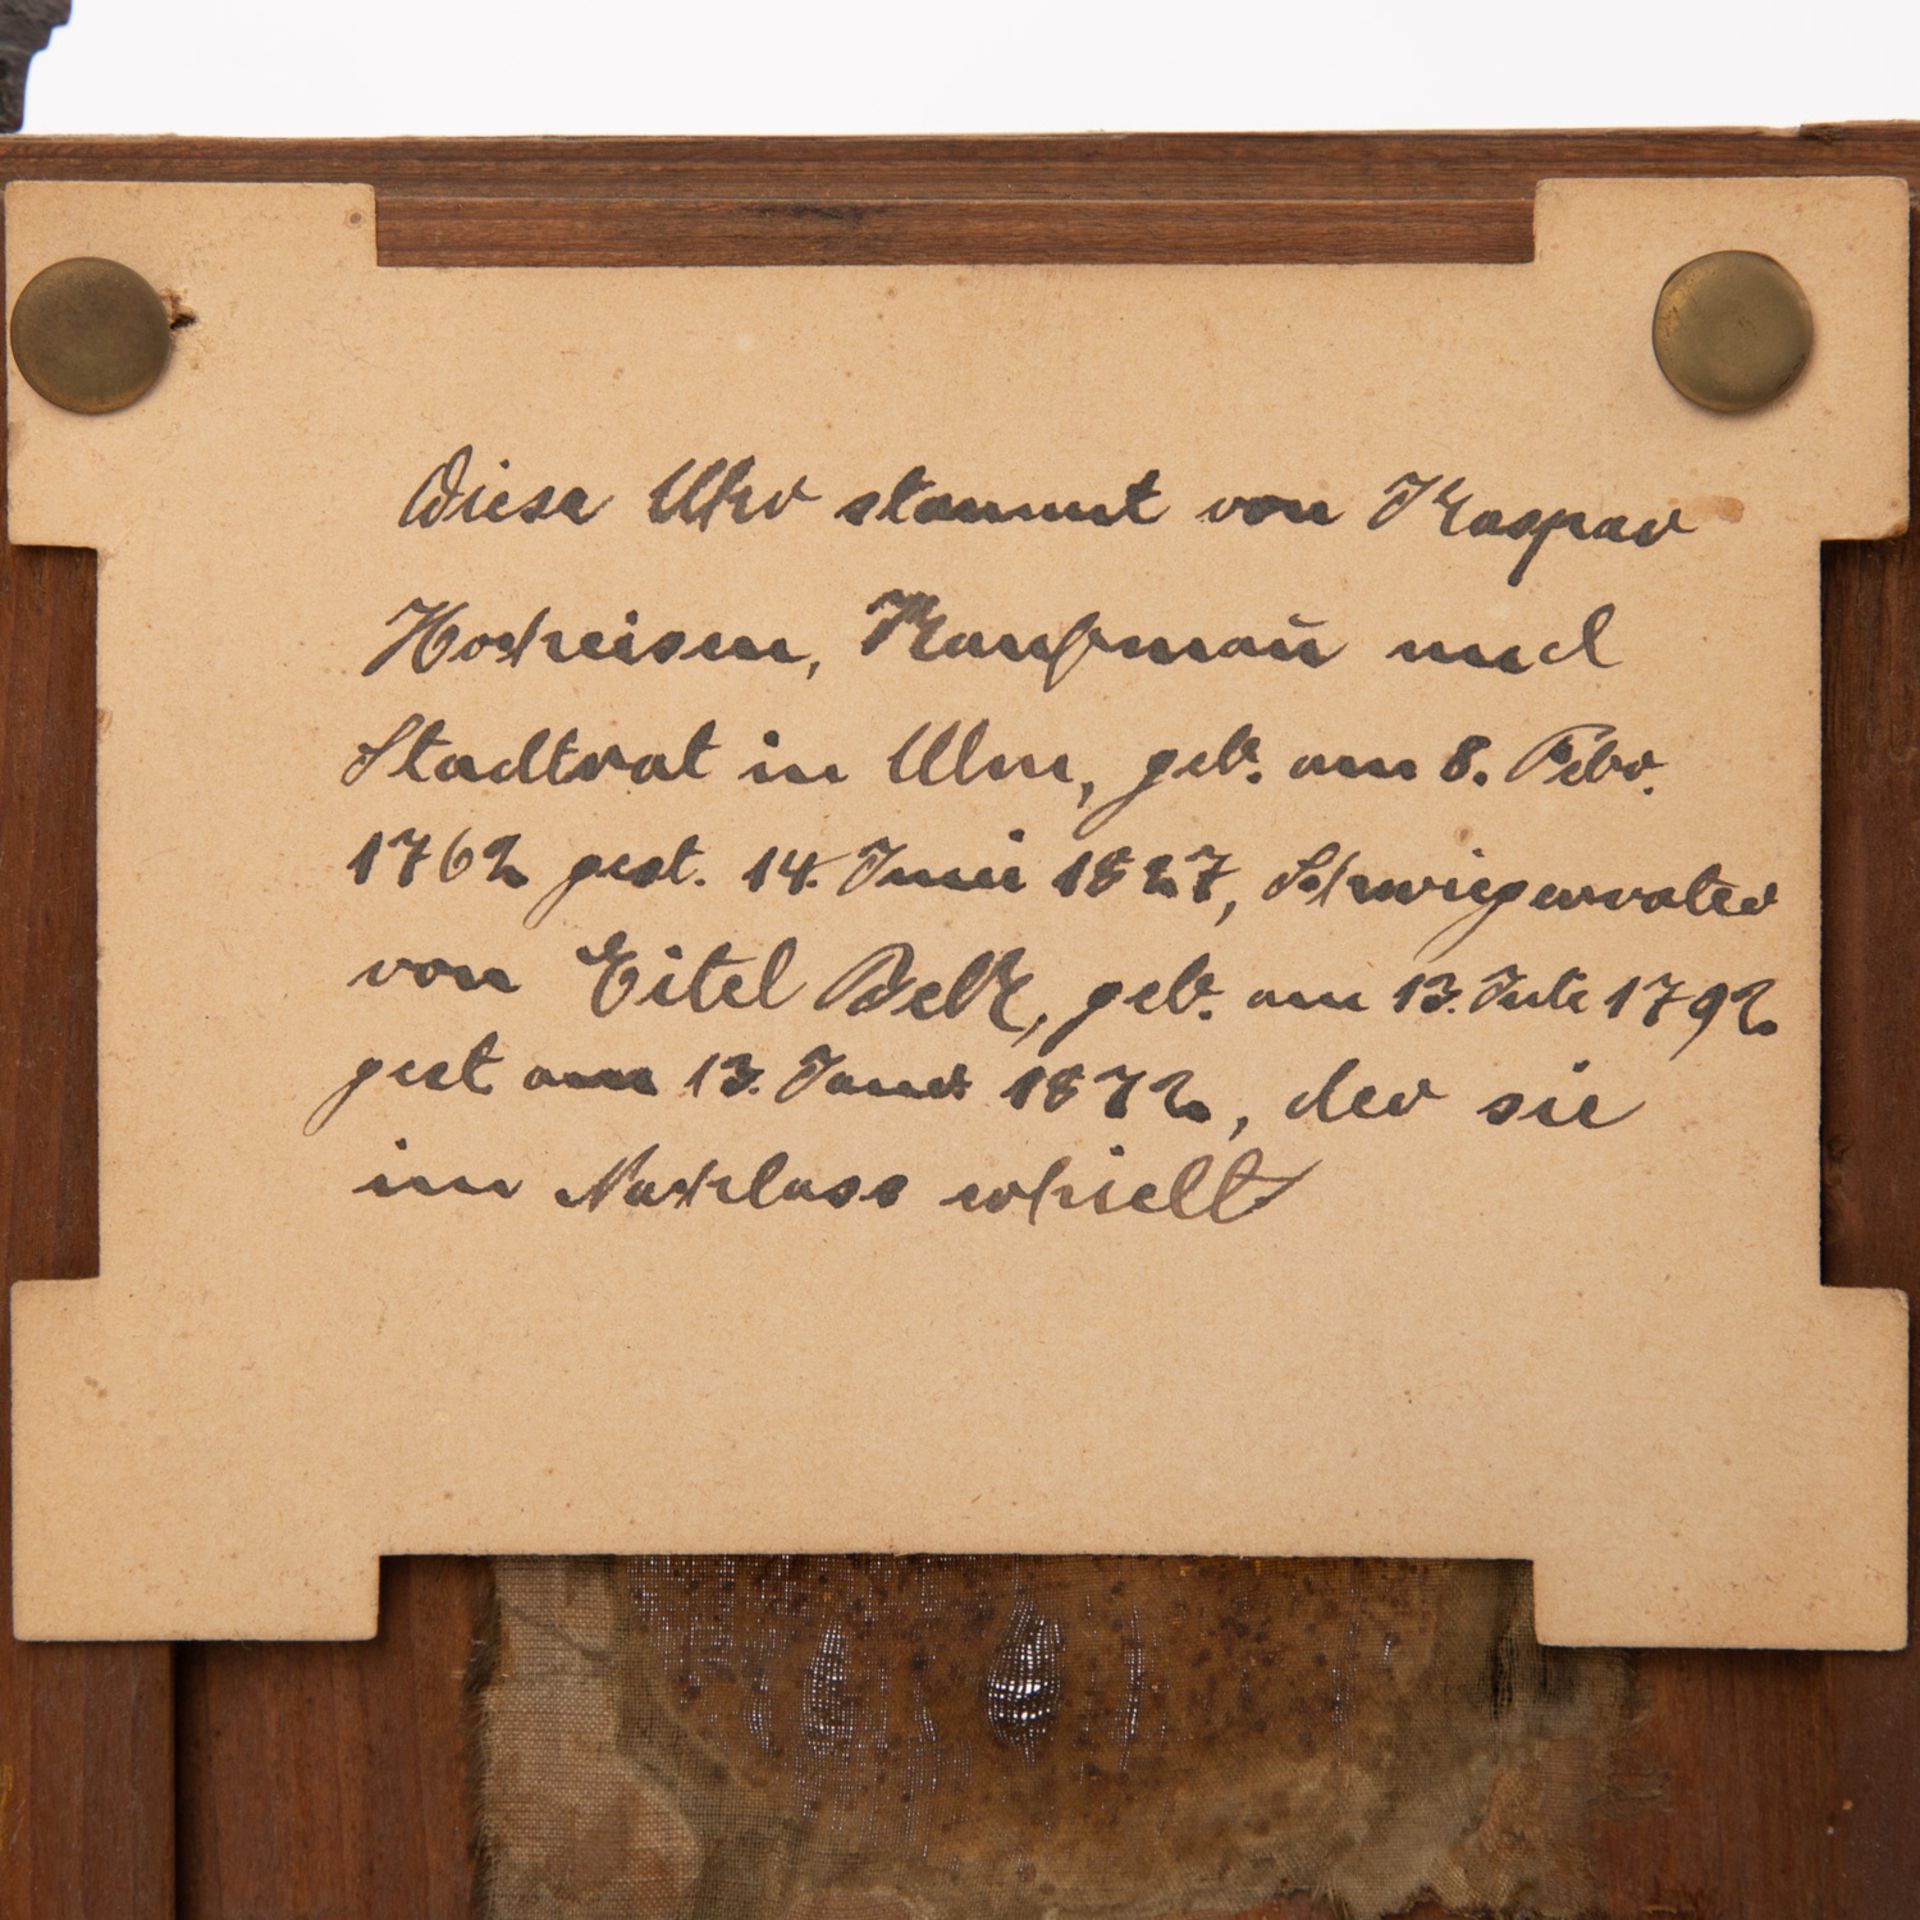 Diese Uhr stammt von Kaspar
Hocheisen, Kaufmañ und
Stadtrat in Ulm, geb. am 8. Febr.
1762 gest. 14. Juni 1827, Schwiegervater
von Eitel Belz, geb. am 13. Juli 1792
gest am 13. Januar 1872, der sie
im Nachlass erhielt